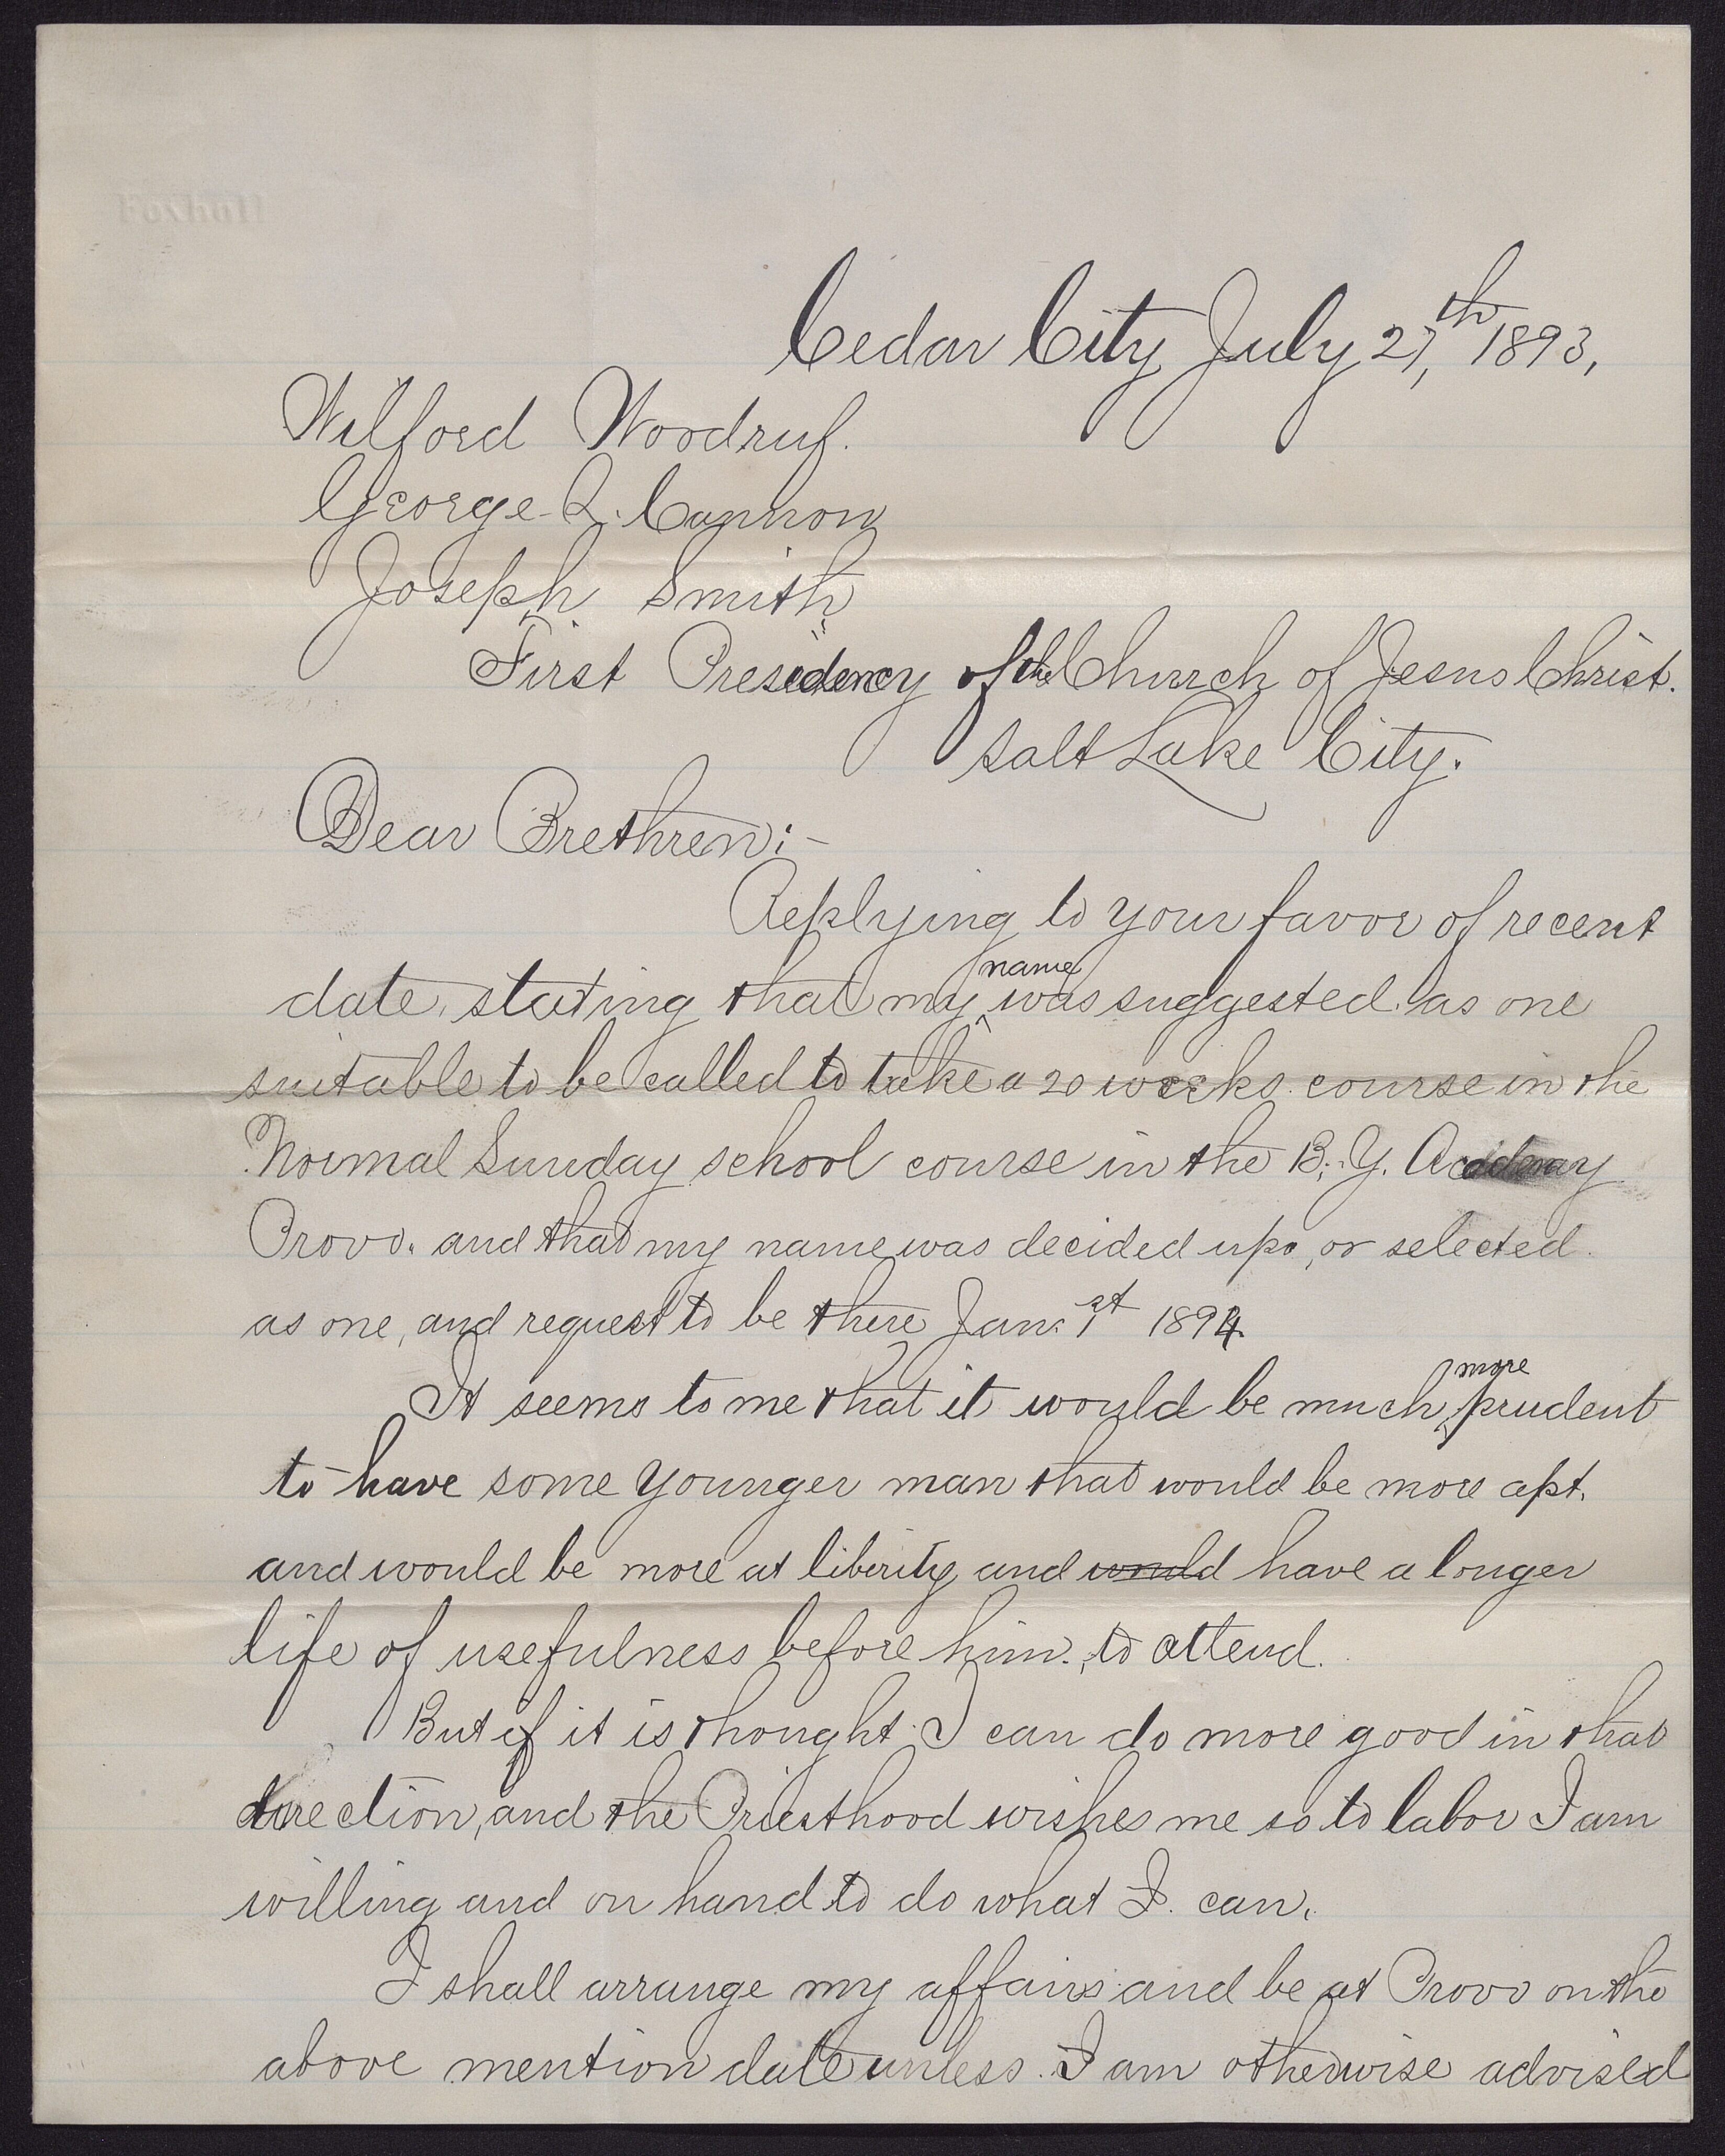 Foxhall
Cedar City July 27,th 1893,
Wilford Woodruf.
George Q. Cannon
Joseph Smith
First Presidency of the Church of Jesus Christ.
Salt Lake City.
Dear Brethren:-
Replying to your favor of recent
date, stating that my name was suggested as one
suitable to be called to take a 20 weeks course in the
Normal Sunday school course in the B. Y. Academy
Provo. and that my name was decided upo, or selected
as one, and request to be there Jan. 1st 1894.
It seems to me that it would be much more prudent
to have some younger man that would be more apt.
and would be more at liberity and would have a longer
life of usefulness before him, to attend.
But if it is thought I can do more good in that
direction, and the Priesthood wishes me so to labor I am
willing and on hand to do what I can.
I shall arrange my affairs and be at Provo on the
above mention date unless I am otherwise advised